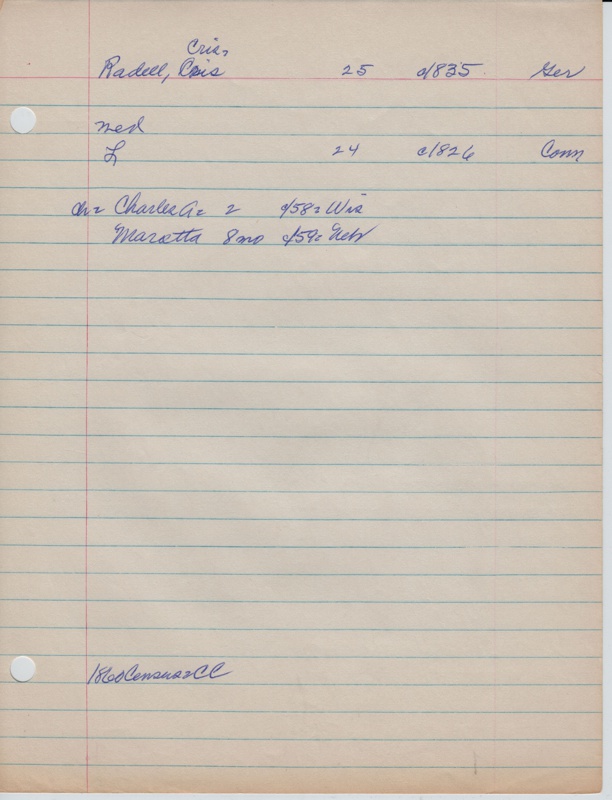 Cris=
Radell, Cris 25 c/835 Ger
med
L 24 c1826 Conn
ch= Charles A= 2 c/58= Wis
Maretta 8mo c/59= Neb
1860 Census=CC